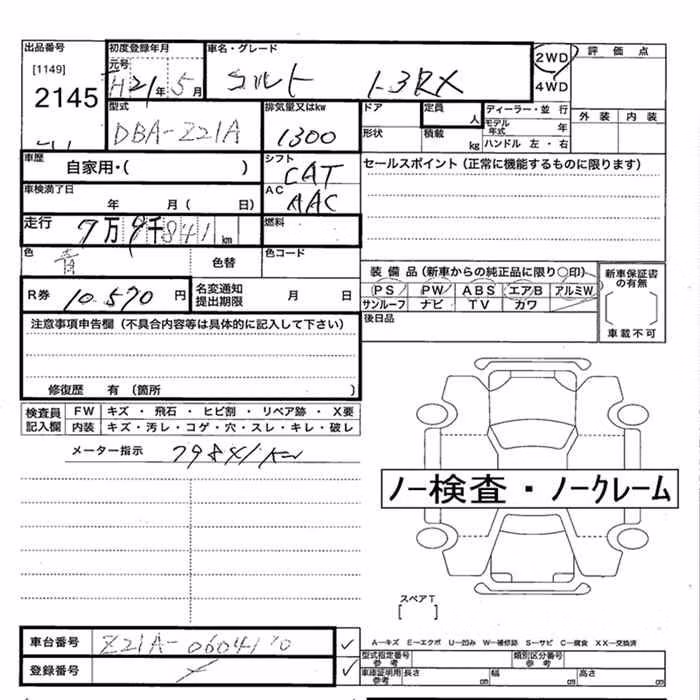 出品番号 初度登録年月 車名・グレード 2WD 評価点
[1149] 元号 H21年5月 コルト 1.3RX 4WD
2145 型式 排気量又はkw ドア 定員 人 ディーラー・並行
DBA-Z21A 1300 形状 積載 kg モデル年式 年 外装 内装
ハンドル 左・右
車歴 自家用・( ) シフト CAT セールスポイント(正常に機能するものに限ります)
車検満了日 年 月( 日) AC AAC
走行 7万9千841km 燃料
色 青 色替 色コード
装備品(新車からの純正品に限り○印) 新車保証書の有無
R券 10.570円 名変通知提出期限 月 日 PS PW ABS エアB アルミW
サンルーフ ナビ TV カワ 車載不可
注意事項申告欄(不具合内容等は具体的に記入して下さい) 後日品
修復歴 有(箇所 )
検査員記入欄 FW キズ・飛石・ヒビ割・リペア跡・X要
内装 キズ・汚レ・コゲ・穴・スレ・キレ・破レ
メーター指示 79841km
ノー検査・ノークレーム
スペアT
[ ]
車台番号 Z21A- A－キズ E－エクボ U－凹み W－補修跡 S－サビ C－腐食 XX－交換済
登録番号 型式指定番号 参考 類別区分番号 参考
車庫証明用 参考 長さ cm 幅 cm 高さ cm